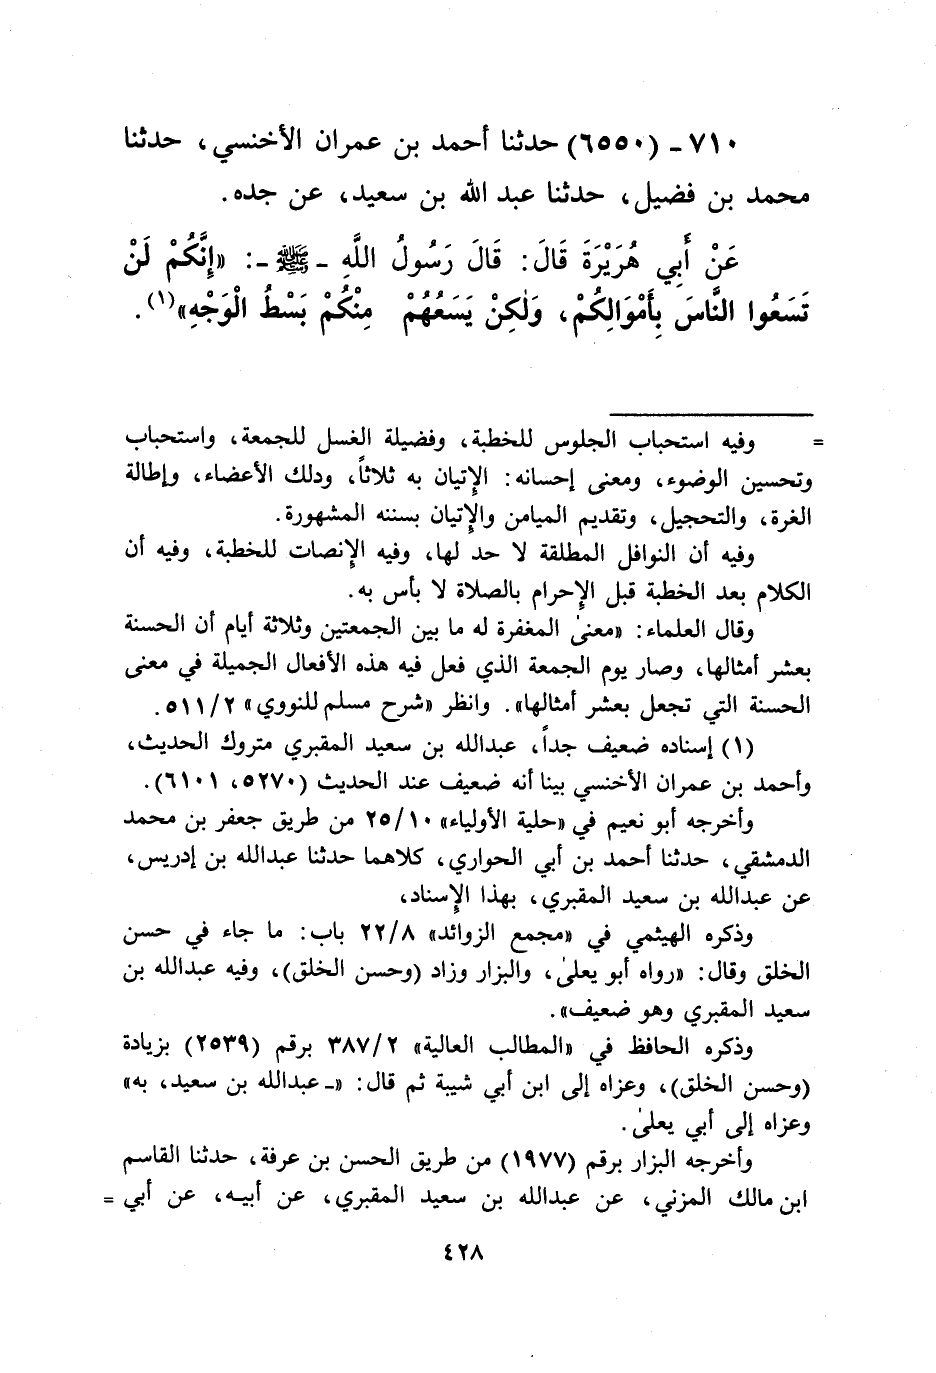 ٧١٠ - (٦٥٥٠) حدثنا أحمد بن عمران الأخنسي، حدثنا
محمد بن فضيل، حدثنا عبد الله بن سعيد، عن جده.
عَنْ أَبِي هُرَيْرَةَ قَالَ: قَالَ رَسُولُ اللَّهِ - ﷺ -: «إِنَّكُمْ لَنْ
تَسَعُوا النَّاسَ بِأَمْوَالِكُمْ، وَلٰكِنْ يَسَعُهُمْ مِنْكُمْ بَسْطُ الْوَجْهِ»(١).
= وفيه استحباب الجلوس للخطبة، وفضيلة الغسل للجمعة، واستحباب
وتحسين الوضوء، ومعنى إحسانه: الإتيان به ثلاثاً، ودلك الأعضاء، وإطالة
الغرة، والتحجيل، وتقديم الميامن والإتيان بسننه المشهورة.
وفيه أن النوافل المطلقة لا حد لها، وفيه الإنصات للخطبة، وفيه أن
الكلام بعد الخطبة قبل الإحرام بالصلاة لا بأس به.
وقال العلماء: «معنىٰ المغفرة له ما بين الجمعتين وثلاثة أيام أن الحسنة
بعشر أمثالها، وصار يوم الجمعة الذي فعل فيه هذه الأفعال الجميلة في معنى
الحسنة التي تجعل بعشر أمثالها». وانظر «شرح مسلم للنووي» ٥١١/٢.
(١) إسناده ضعيف جداً، عبدالله بن سعيد المقبري متروك الحديث،
وأحمد بن عمران الأخنسي بينا أنه ضعيف عند الحديث (٥٢٧٠، ٦١٠١).
وأخرجه أبو نعيم في «حلية الأولياء» ٢٥/١٠ من طريق جعفر بن محمد
الدمشقي، حدثنا أحمد بن أبي الحواري، كلاهما حدثنا عبدالله بن إدريس،
عن عبدالله بن سعيد المقبري، بهذا الإسناد،
وذكره الهيثمي في «مجمع الزوائد» ٢٢/٨ باب: ما جاء في حسن
الخلق وقال: «رواه أبو يعلىٰ، والبزار وزاد (وحسن الخلق)، وفيه عبدالله بن
سعيد المقبري وهو ضعيف».
وذكره الحافظ في «المطالب العالية» ٣٨٧/٢ برقم (٢٥٣٩) بزيادة
(وحسن الخلق)، وعزاه إلى ابن أبي شيبة ثم قال: «- عبدالله بن سعيد، به»
وعزاه إلى أبي يعلىٰ.
وأخرجه البزار برقم (١٩٧٧) من طريق الحسن بن عرفة، حدثنا القاسم
ابن مالك المزني، عن عبدالله بن سعيد المقبري، عن أبيه، عن أبي =
٤٢٨